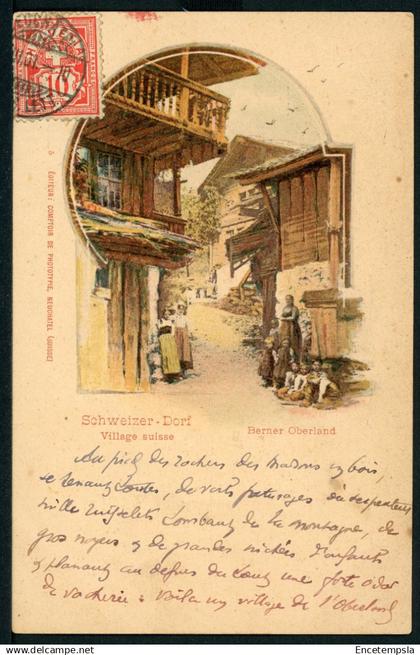 10
5 EDITEUR: COMPTOIR DE PHOTOTYPIE, NEUCHATEL (SUISSE)
Schweizer-Dorf
Village suisse
Berner Oberland
Au pied des rochers des maisons en bois,
se tenant toutes, de verts paturages où serpentent
mille ruisselets tombant de la montagne, de
gros noyers & de grandes nichées d'enfants
& planant au dessus de tout une forte odeur
de vacherie: Voilà un village de l'Oberland
© Encetempsla
www.delcampe.net
Encetempsla